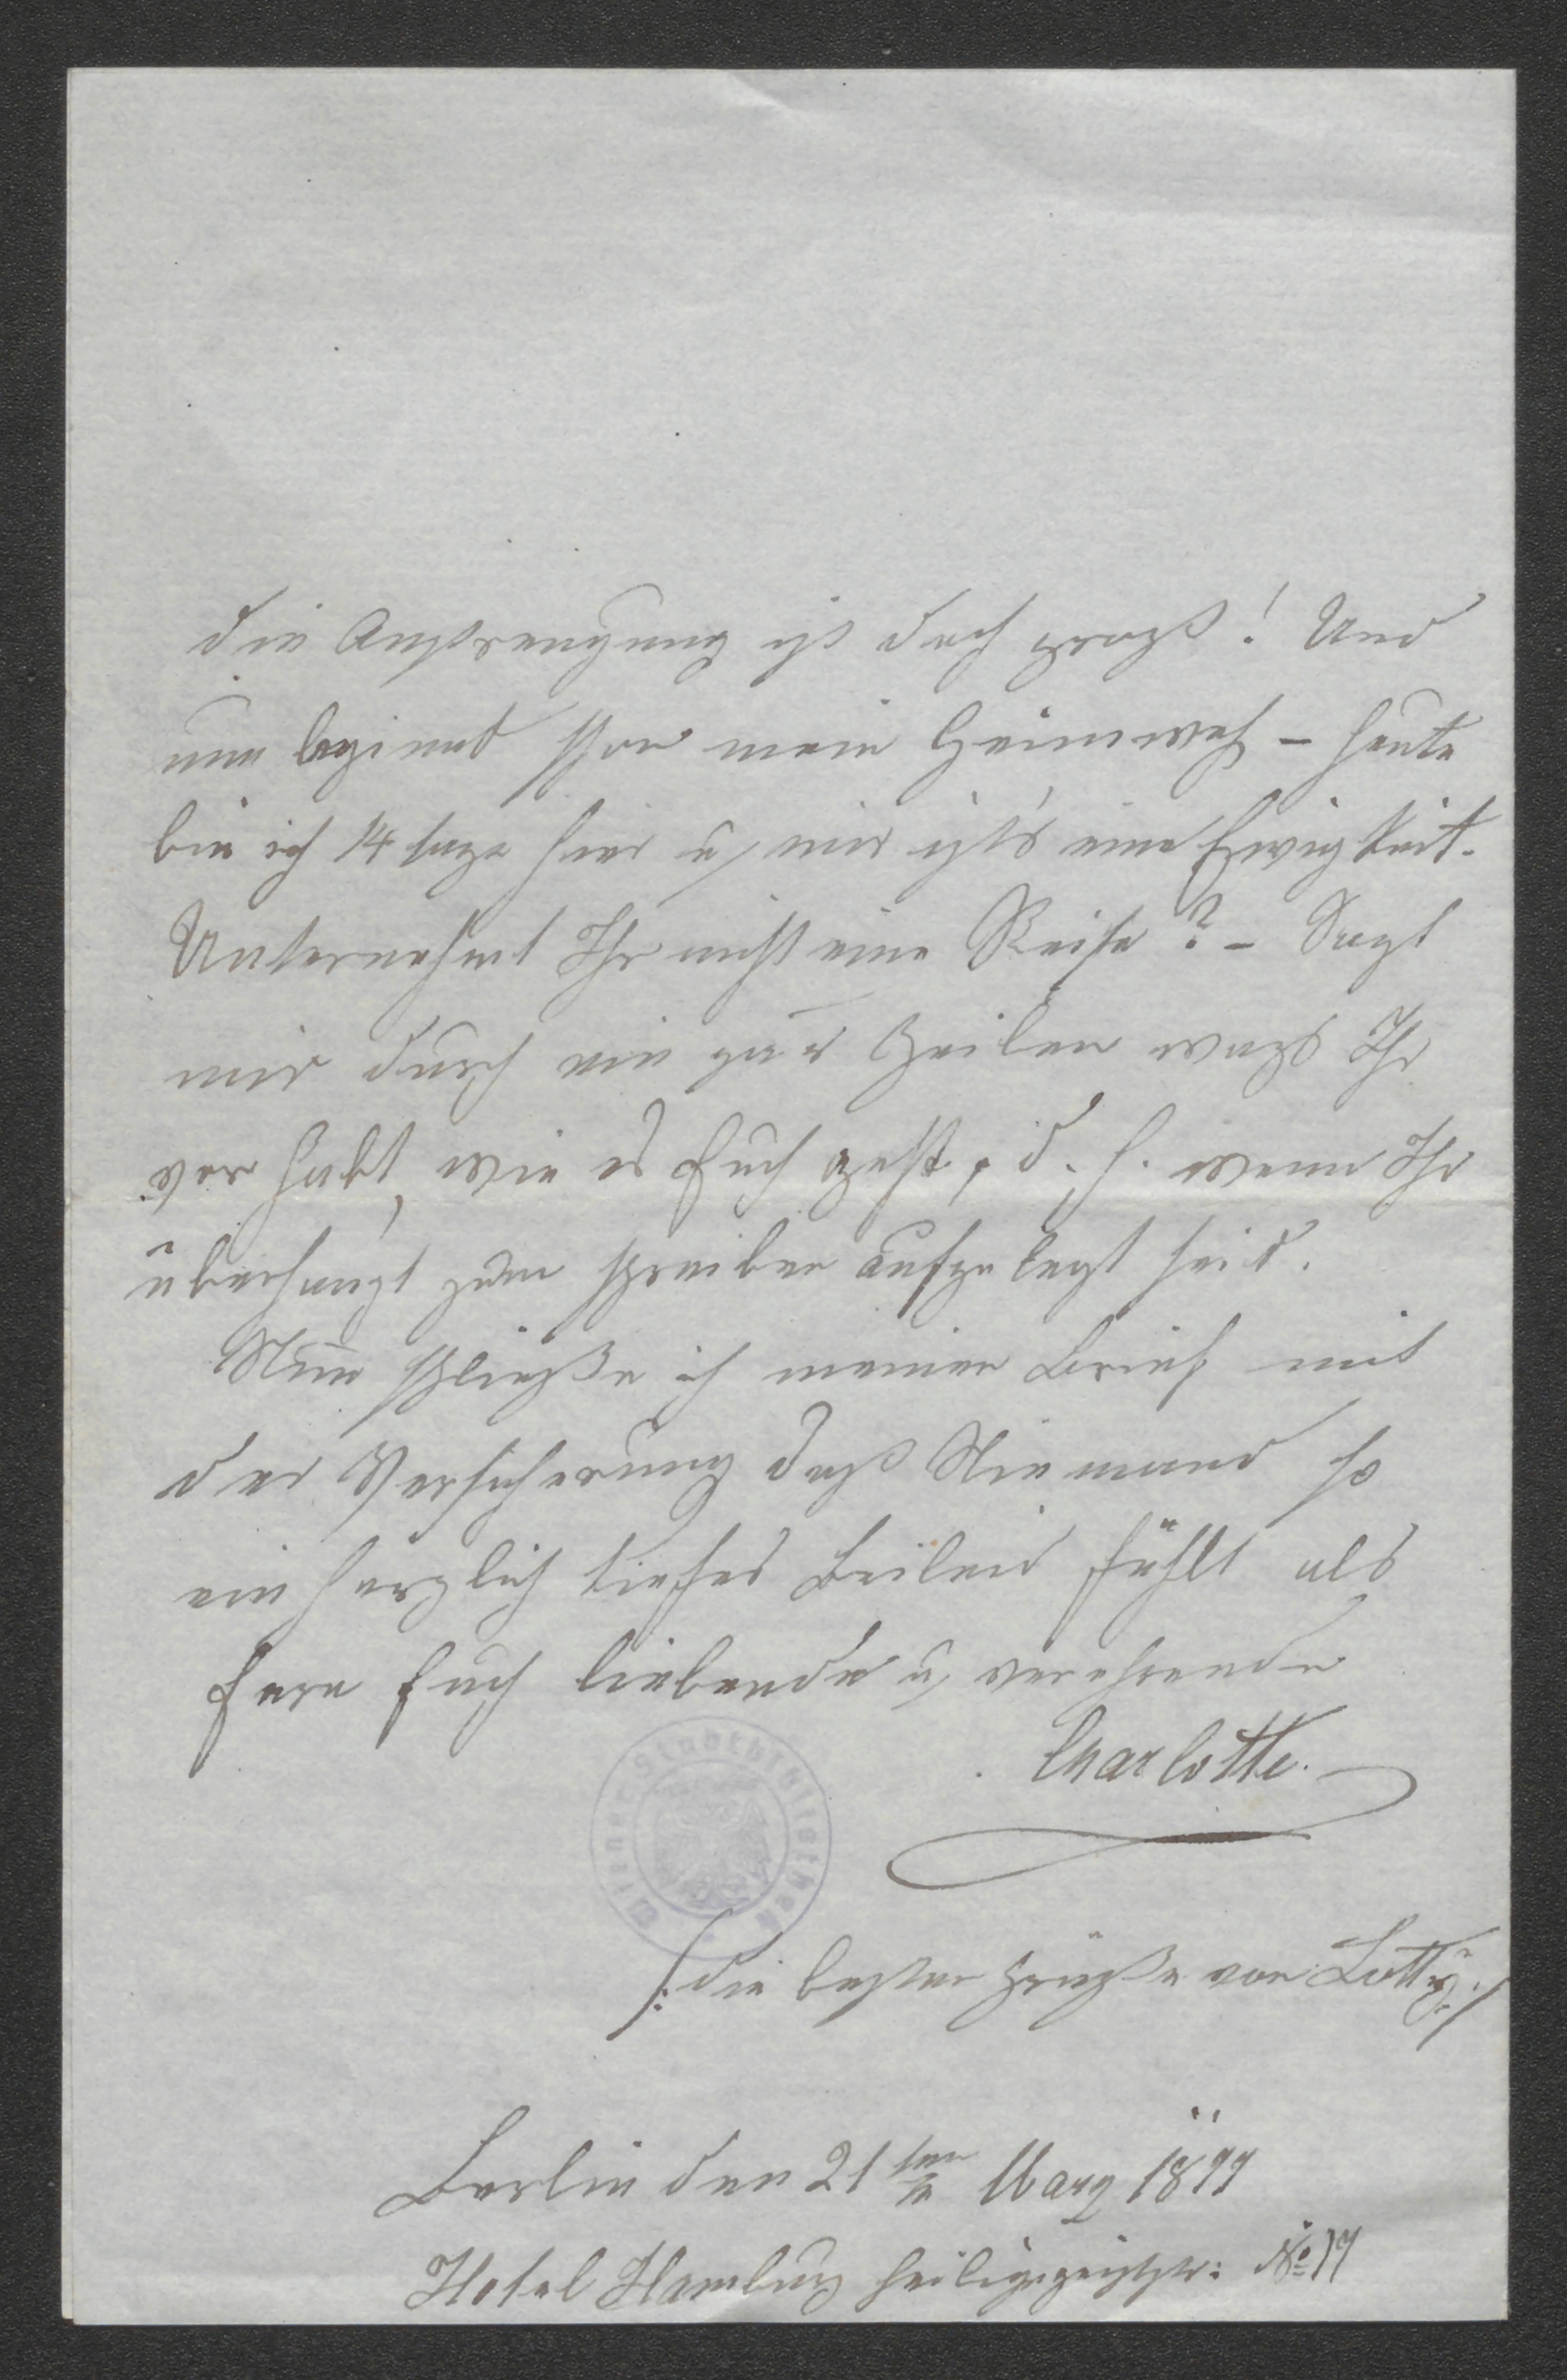 die Anstrengung ist doch groß! Und
nun beginnt schon mein Heimweh – heute
bin ich 14 Tage hier u. mir ist's eine Ewigkeit.
Unternehmt Ihr nicht eine Reise? – Sagt
mir durch ein paar Zeilen was Ihr
vor habt, wie es Euch geht, d. h. wenn Ihr
überhaupt zum schreiben aufgelegt seid.
Nun schließe ich meinen Brief mit
der Versicherung daß Niemand so
ein herzlich tiefes Beileid fühlt als
Eure Euch liebende u. verehrende
Charlotte.
Wiener Stadtbibliothek
/: die besten Grüße von Lotti :/
Berlin den 21ten März 1899
Hotel Hamburg Heiligegeiststr: No 19